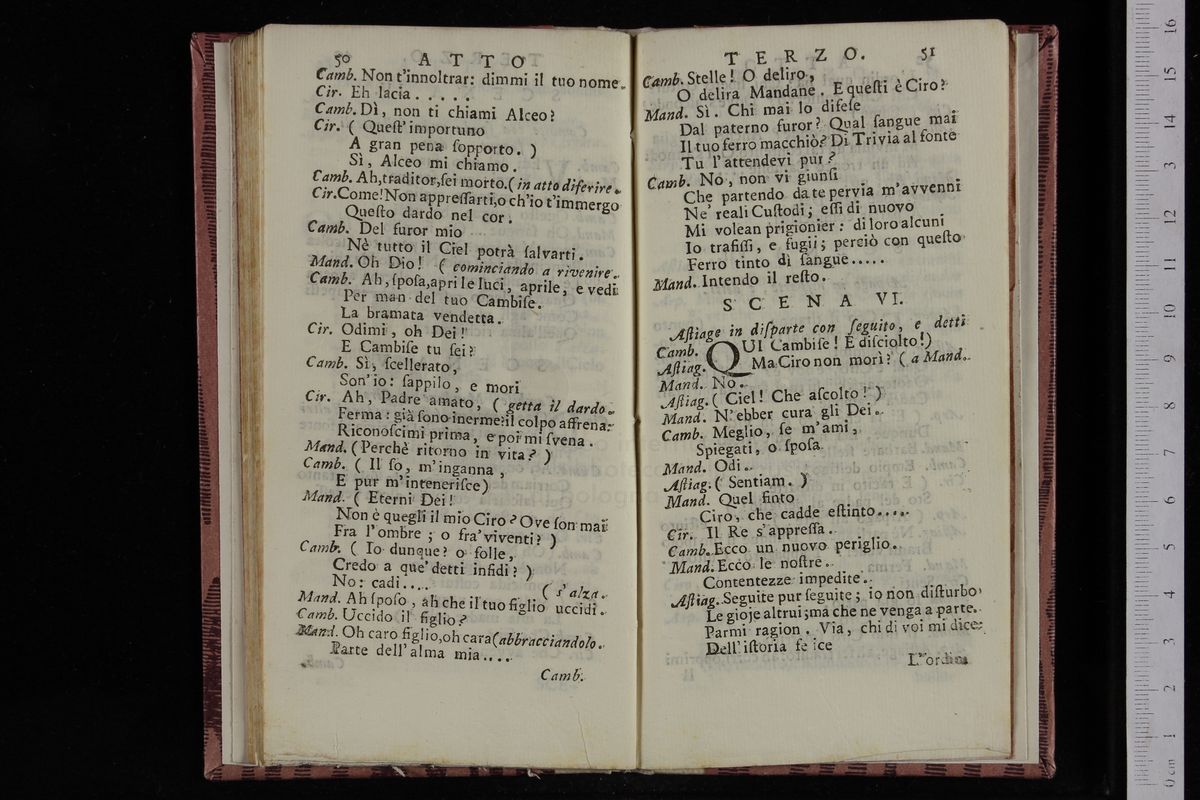 50 ATTO
Camb. Non t'innoltrar: dimmi il tuo nome.
Cir. Eh lacia.....
Camb. Dì, non ti chiami Alceo?
Cir. ( Quest' importuno
A gran pena sopporto. )
Sì, Alceo mi chiamo.
Camb. Ah, traditor, sei morto. ( in atto di ferire.
Cir. Come! Non appressarti, o ch'io t'immergo
Questo dardo nel cor.
Camb. Del furor mio
Nè tutto il Ciel potrà salvarti.
Mand. Oh Dio! ( cominciando a rivenire.
Camb. Ah, sposa, apri le luci, aprile, e vedi
Per man del tuo Cambise.
La bramata vendetta.
Cir. Odimi, oh Dei!
E Cambise tu sei?
Camb. Sì, scellerato,
Son' io: sappilo, e mori
Cir. Ah, Padre amato, ( getta il dardo.
Ferma: già sono inerme: il colpo affrena:
Riconoscimi prima, e poi mi svena.
Mand. ( Perchè ritorno in vita? )
Camb. ( Il so, m'inganna,
E pur m'intenerisce)
Mand. ( Eterni Dei!
Non è quegli il mio Ciro? Ove son mai
Fra l'ombre; o fra' viventi? )
Camb. ( Io dunque? o folle,
Credo a que' detti infidi? )
No: cadi.... ( s'alza.
Mand. Ah sposo, ah che il tuo figlio uccidi.
Camb. Uccido il figlio?
Mand. Oh caro figlio, oh cara (abbracciandolo.
Parte dell' alma mia....
Camb.
TERZO. 51
Camb. Stelle! O deliro,
O delira Mandane. E questi è Ciro?
Mand. Sì. Chi mai lo difese
Dal paterno furor? Qual sangue mai
Il tuo ferro macchiò? Di Trivia al fonte
Tu l'attendevi pur?
Camb. No, non vi giunsi
Che partendo da te per via m'avvenni
Ne' reali Custodi; essi di nuovo
Mi volean prigionier: di loro alcuni
Io trafissi, e fugii; perciò con questo
Ferro tinto di sangue.....
Mand. Intendo il resto.
SCENA VI.
Astiage in disparte con seguito, e detti
Camb. QUI Cambise! E disciolto!)
Astiag. Ma Ciro non morì? ( a Mand.
Mand. No.
Astiag. ( Ciel! Che ascolto! )
Mand. N'ebber cura gli Dei.
Camb. Meglio, se m'ami,
Spiegati, o sposa.
Mand. Odi.
Astiag. ( Sentiam. )
Mand. Quel finto
Ciro, che cadde estinto.....
Cir. Il Re s'appressa.
Camb. Ecco un nuovo periglio.
Mand. Ecco le nostre
Contentezze impedite.
Astiag. Seguite pur seguite; io non disturbo
Le gioje altrui; ma che ne venga a parte
Parmi ragion. Via, chi di voi mi dice
Dell' istoria felice
L'ordine